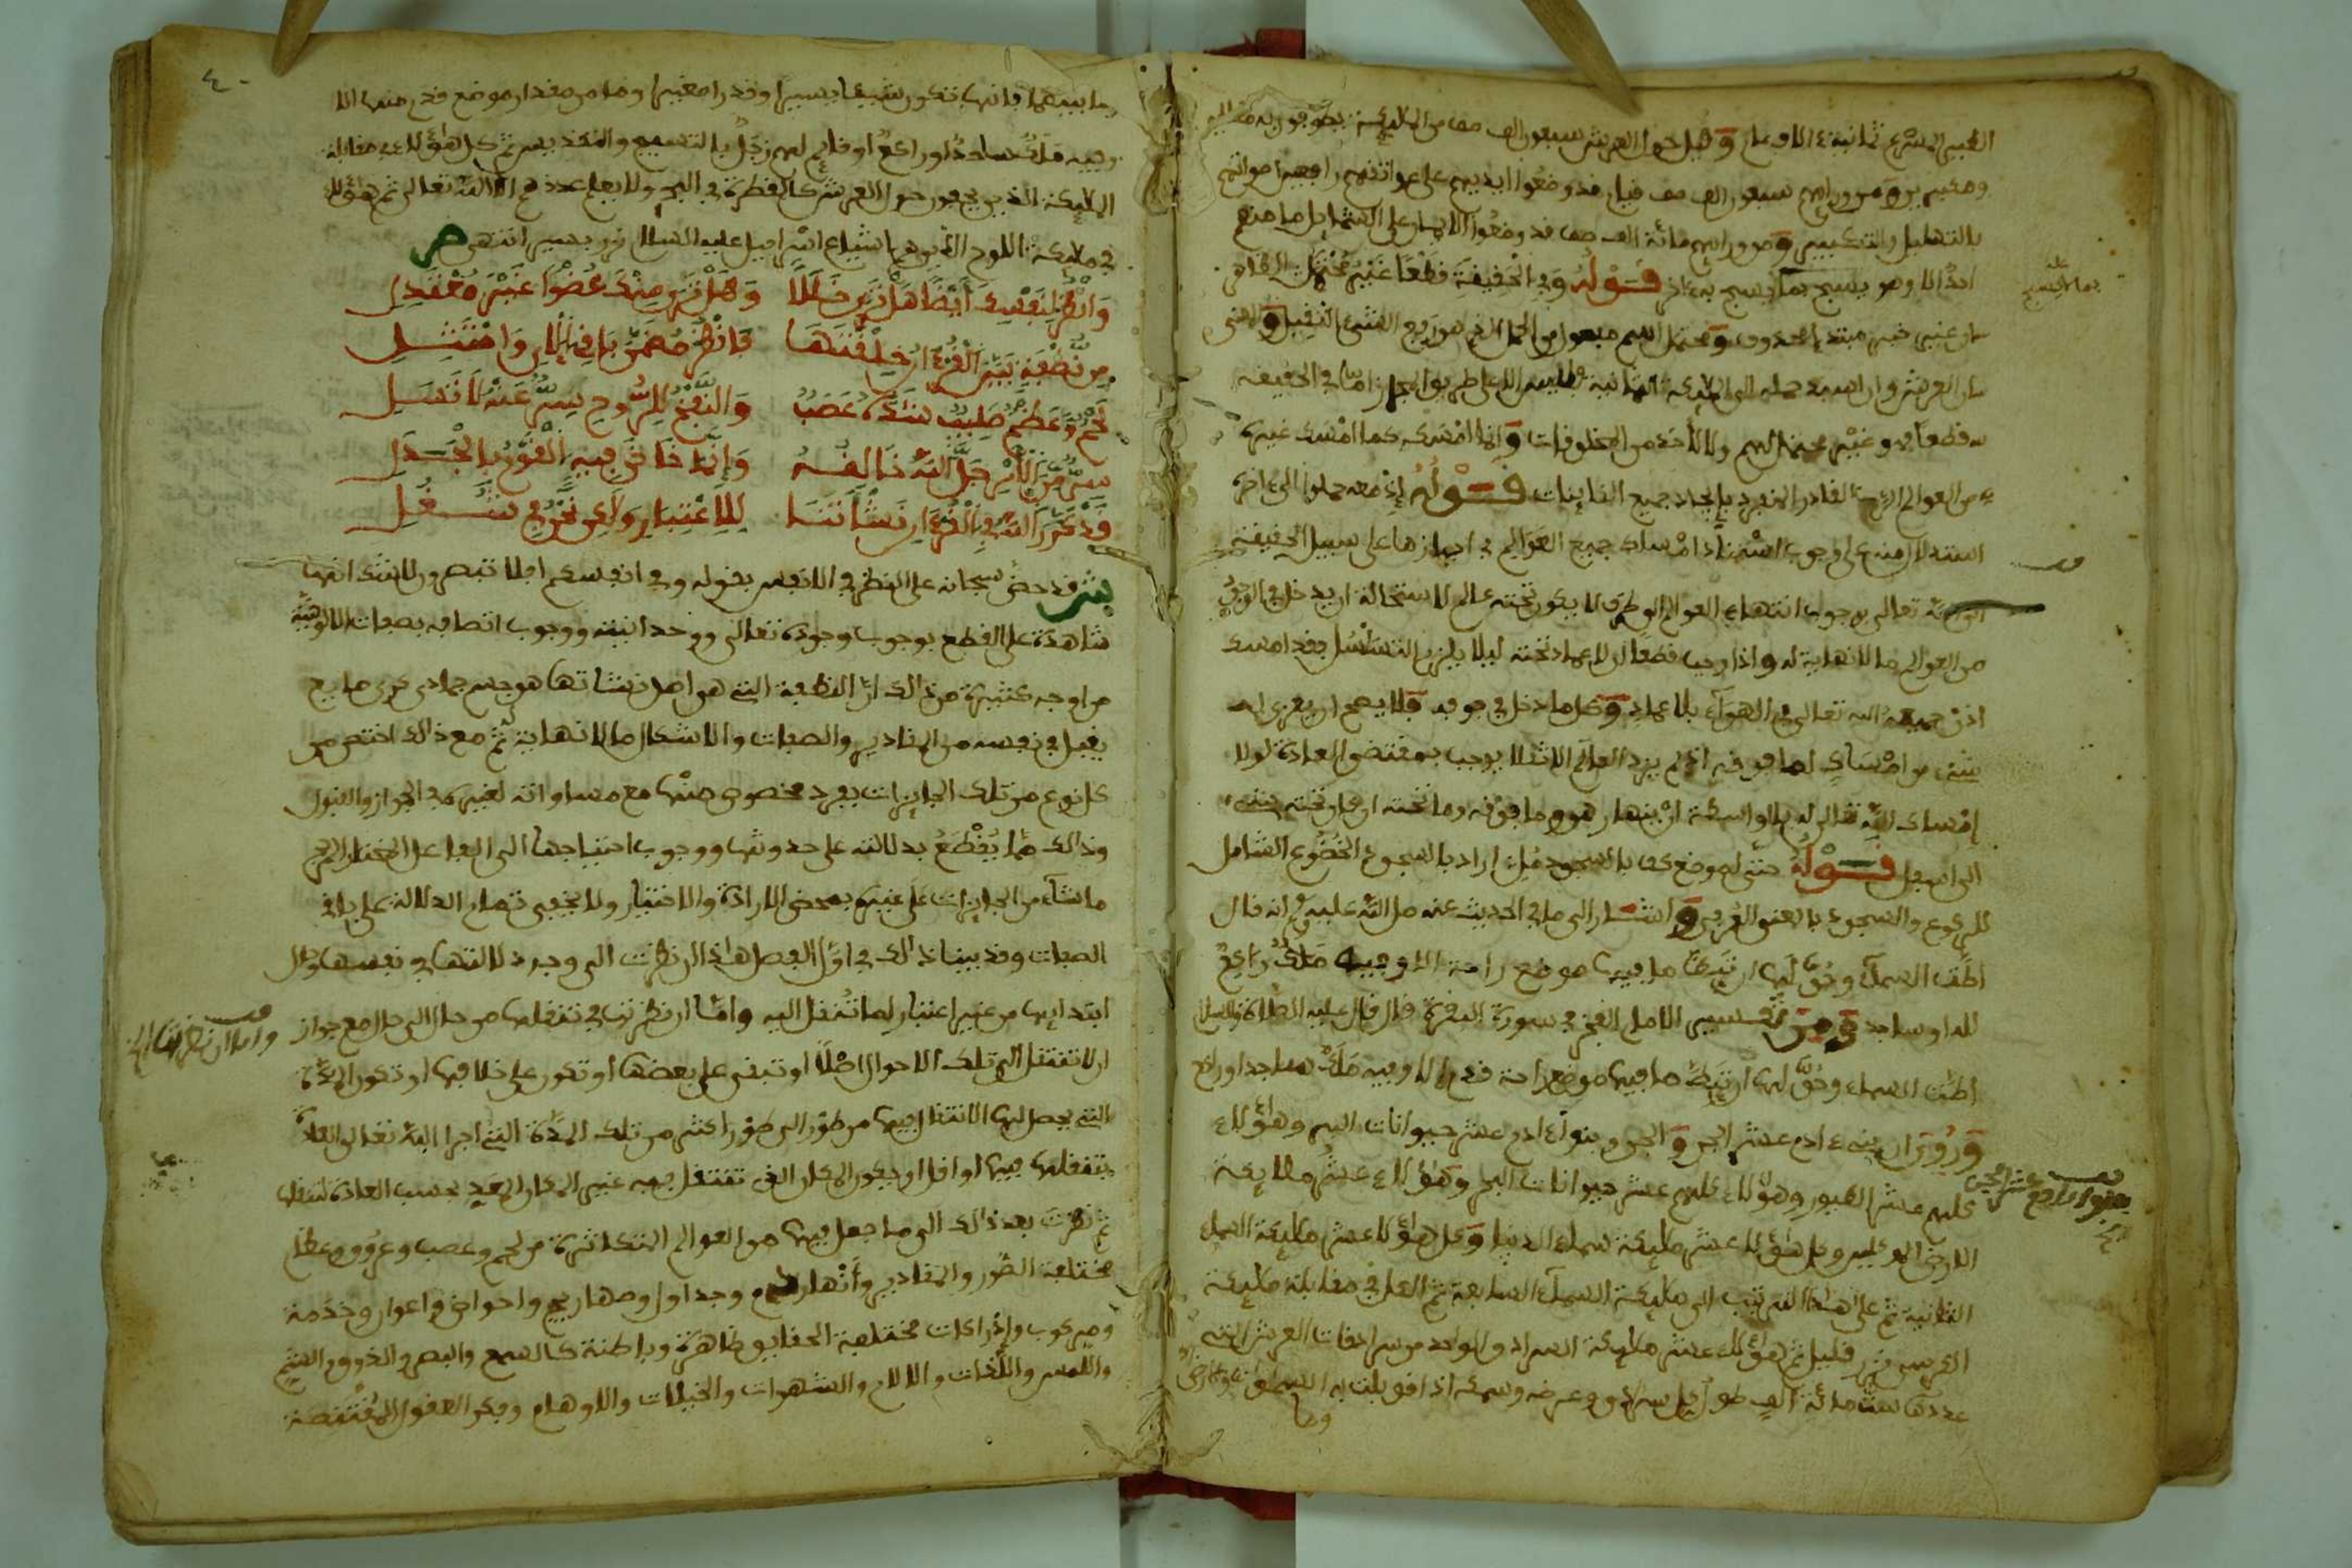 الطير المسرع ثمانية الاف عام وقيل حول العرش سبعون الف صف من الملايكة يطوفون به مهللين
ومكبرين ومن ورايهم سبعون الف صف قيام قد وضعوا ايديهم على عواتقهم رافعين اصواتهم
بالتهليل والتكبير ومن ورايهم مائة الف صف قد وضعوا الايمان على الشمايل ما منهم
احد الا وهو يسبح بما لا يسبح به الاخر قوله وفي الحقيقة قطعا غير محتمل
خبر مبتدإ محذوف ومحتمل اسم مفعول من الحمل الذي هو رفع الشيء الثقيل والمعنى
العرش وان اسند حمله الى الملايكة الثمانية فليس الا على طريق المجاز اما في الحقيقة
قطعا فهو غير محتمل لهم ولا لأحد من المخلوقات وانما امسكه كما امسك غيره
من العوالم القادر المنفرد بإيجاد جميع الكاينات قوله إذ معه حملوا الى اخره
استدلال منه على وجوب استناد امساك جميع العوالم في احيازها على سبيل الحقيقة
الى الله تعالى بوجوب انتهاء العوالم الى طرف لا يكون تحته عالم لاستحالة ان يدخل في الوجود
من العوالم ما لا نهاية له واذا وجب قطعا ان لا عماد تحته ليلا يلزم التسلسل فقد امسك
اذن جميعه الله تعالى في الهوآء بلا عماد وكل ما دخل في جوفه فلا يصح ان يعزى له
شيء من امساك لما فوقه اذ لم يزد العالم الا ثقلا يوجب بمقتضى العادة لولا
إمساك الله تعالى له بلا واسطة ان ينهار هو وما فوقه وما تحته ان كان تحته شيء
الى اسفل قوله حتى لموضع كف بالسجود ملئ اراد بالسجود الخضوع الشامل
للركوع والسجود بالمعنى العرفي واشار الى ما في الحديث عنه صلى الله عليه وسلم انه قال
اطت السمآء وحق لها ان تئط ما فيها موضع راحة الا وفيه ملك راكع
لله او ساجد ومن تفسير الامام الفخر في سورة البقرة قال قال عليه الصلاة والسلام
اطت السماء وحق لها ان تئط ما فيها موضع راحة قدم الا وفيه ملك ساجد او راكع
وروي ان بني ءادم عشر الجن والجن وبنو ءادم عشر حيوانات البر وهؤلاء
كلهم عشر الطيور وهؤلاء كلهم عشر حيوانات البحر وهؤلاء عشر ملايكة
الارض الموكلين وكل هؤلاء عشر ملايكة سماء الدنيا وكل هؤلاء عشر ملايكة السماء
الثانية ثم على هذا الترتيب الى ملايكة السمآء السابعة ثم الكل في مقابلة ملايكة
الكرسي نزر قليل ثم هؤلاء عشر ملايكة السرادق الواحد من سرادقات العرش التي
عددها ستمائة الف طول كل سرادق وعرضه وسمكه اذا قوبلت به السموات والارض
وما
وما بينهما فانها تكون شيئا يسيرا وقدرا صغيرا وما من مقدار موضع قدم منها الا
وفيه ملك ساجد او راكع او قايم لهم زجل بالتسبيح والتقديس ثم كل هؤلاء في مقابلة
الملايكة الذين يحومون حول العرش كالقطرة في البحر ولا يعلم عددهم الا الله تعالى ثم هؤلاء
في ملايكة اللوح الذين هم اشياع اسرافيل عليه السلام نزر يسير انتهى ص
وانظر لنفسك ايضا هل ترى خللا وهل ترى منك عضوا غير معتدل
من نطفة بيد القرار خلقتها فانظر مضمن
لحم وعظم صليب شده عصب والنفخ للروح سر عنه لا تسل
سر من الأمر جل الله خالقه وإنما خاض فيه القوم بالجدل
وذكر الله في القرءان نشأتنا للاعتبار ولكن نحن في شغل
ش قد حض سبحانه على النظر في الانفس بقوله وفي انفسكم افلا تبصرون ولا شك انها
شاهدة على القطع بوجوب وجوده تعالى ووحدانيته ووجوب اتصافه بصفات الالوهية
من اوجه كثيرة من ذالك ان النطفة التي هي اصل نشاتها هو جسم جمادي كري صايح
يقبل في نفسه من المقادير والصفات والاشكال ما لا نهاية له ثم مع ذالك اختص من
كل نوع من تلك الجايزات بفرد مخصوص منها مع مساواته لغيره في الجواز والقبول
وذالك مما يقطع بدلالته على حدوثها ووجوب احتياجها الى الفاعل المختار المرجح
ما شآء من الجايزات على غيره بمحض الارادة والاختيار ولا يخفى تمام الدلالة على باقي
الصفات وقد بينا ذالك في اول الفصل هاذا ان نظرت الى وجود ذاتها في نفسها وحال
ابتدايها من غير اعتبار لما تنقل اليه واما ان نظرت في تنقلها من حال الى حال مع جواز
ان لا تنتقل الى تلك الاحوال اصلا او تبقى على بعضها او تكون على خلافها او تكون المدة
التي يحصل لها الانتقال فيها من طور الى طور اكثر من تلك المدة التي اجرا الله تعالى العادة
بتنقلها فيها او اقل او يكون المكان الذي تنتقل فيه غير المكان المعد بحسب العادة لتنقلها
ثم نظرت بعد ذالك الى ما جعل فيها من العوالم المتكاثرة من لحم وعصب وعروق وعظام
مختلفة الصور والمقادير وأنهار دم وجداول وصهاريج واحواض واعوان وخدمة
ومركوب وإدراكات مختلفة الحقايق ظاهرة وباطنة كالسمع والبصر والذوق والشم
واللمس واللذات والالام والشهوات والخيالات والاوهام وفكر العقول المقتنصة